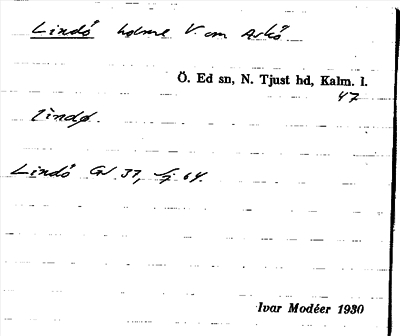 Lindö holme V. om Askö
Ö. Ed sn, N. Tjust hd, Kalm. l.
47
lìndø.
Lindö GV. 37, Lj 64.
Ivar Modéer 1930